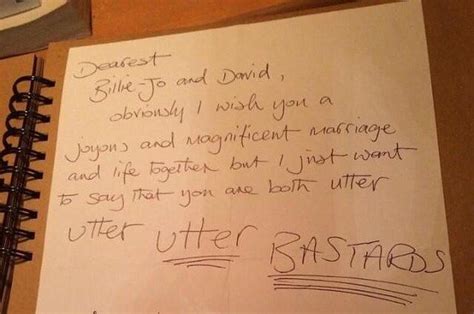 Dearest
Billie-Jo and David,
obviously I wish you a
joyous and magnificent marriage
and life together but I just want
to say that you are both utter
utter utter BASTARDS